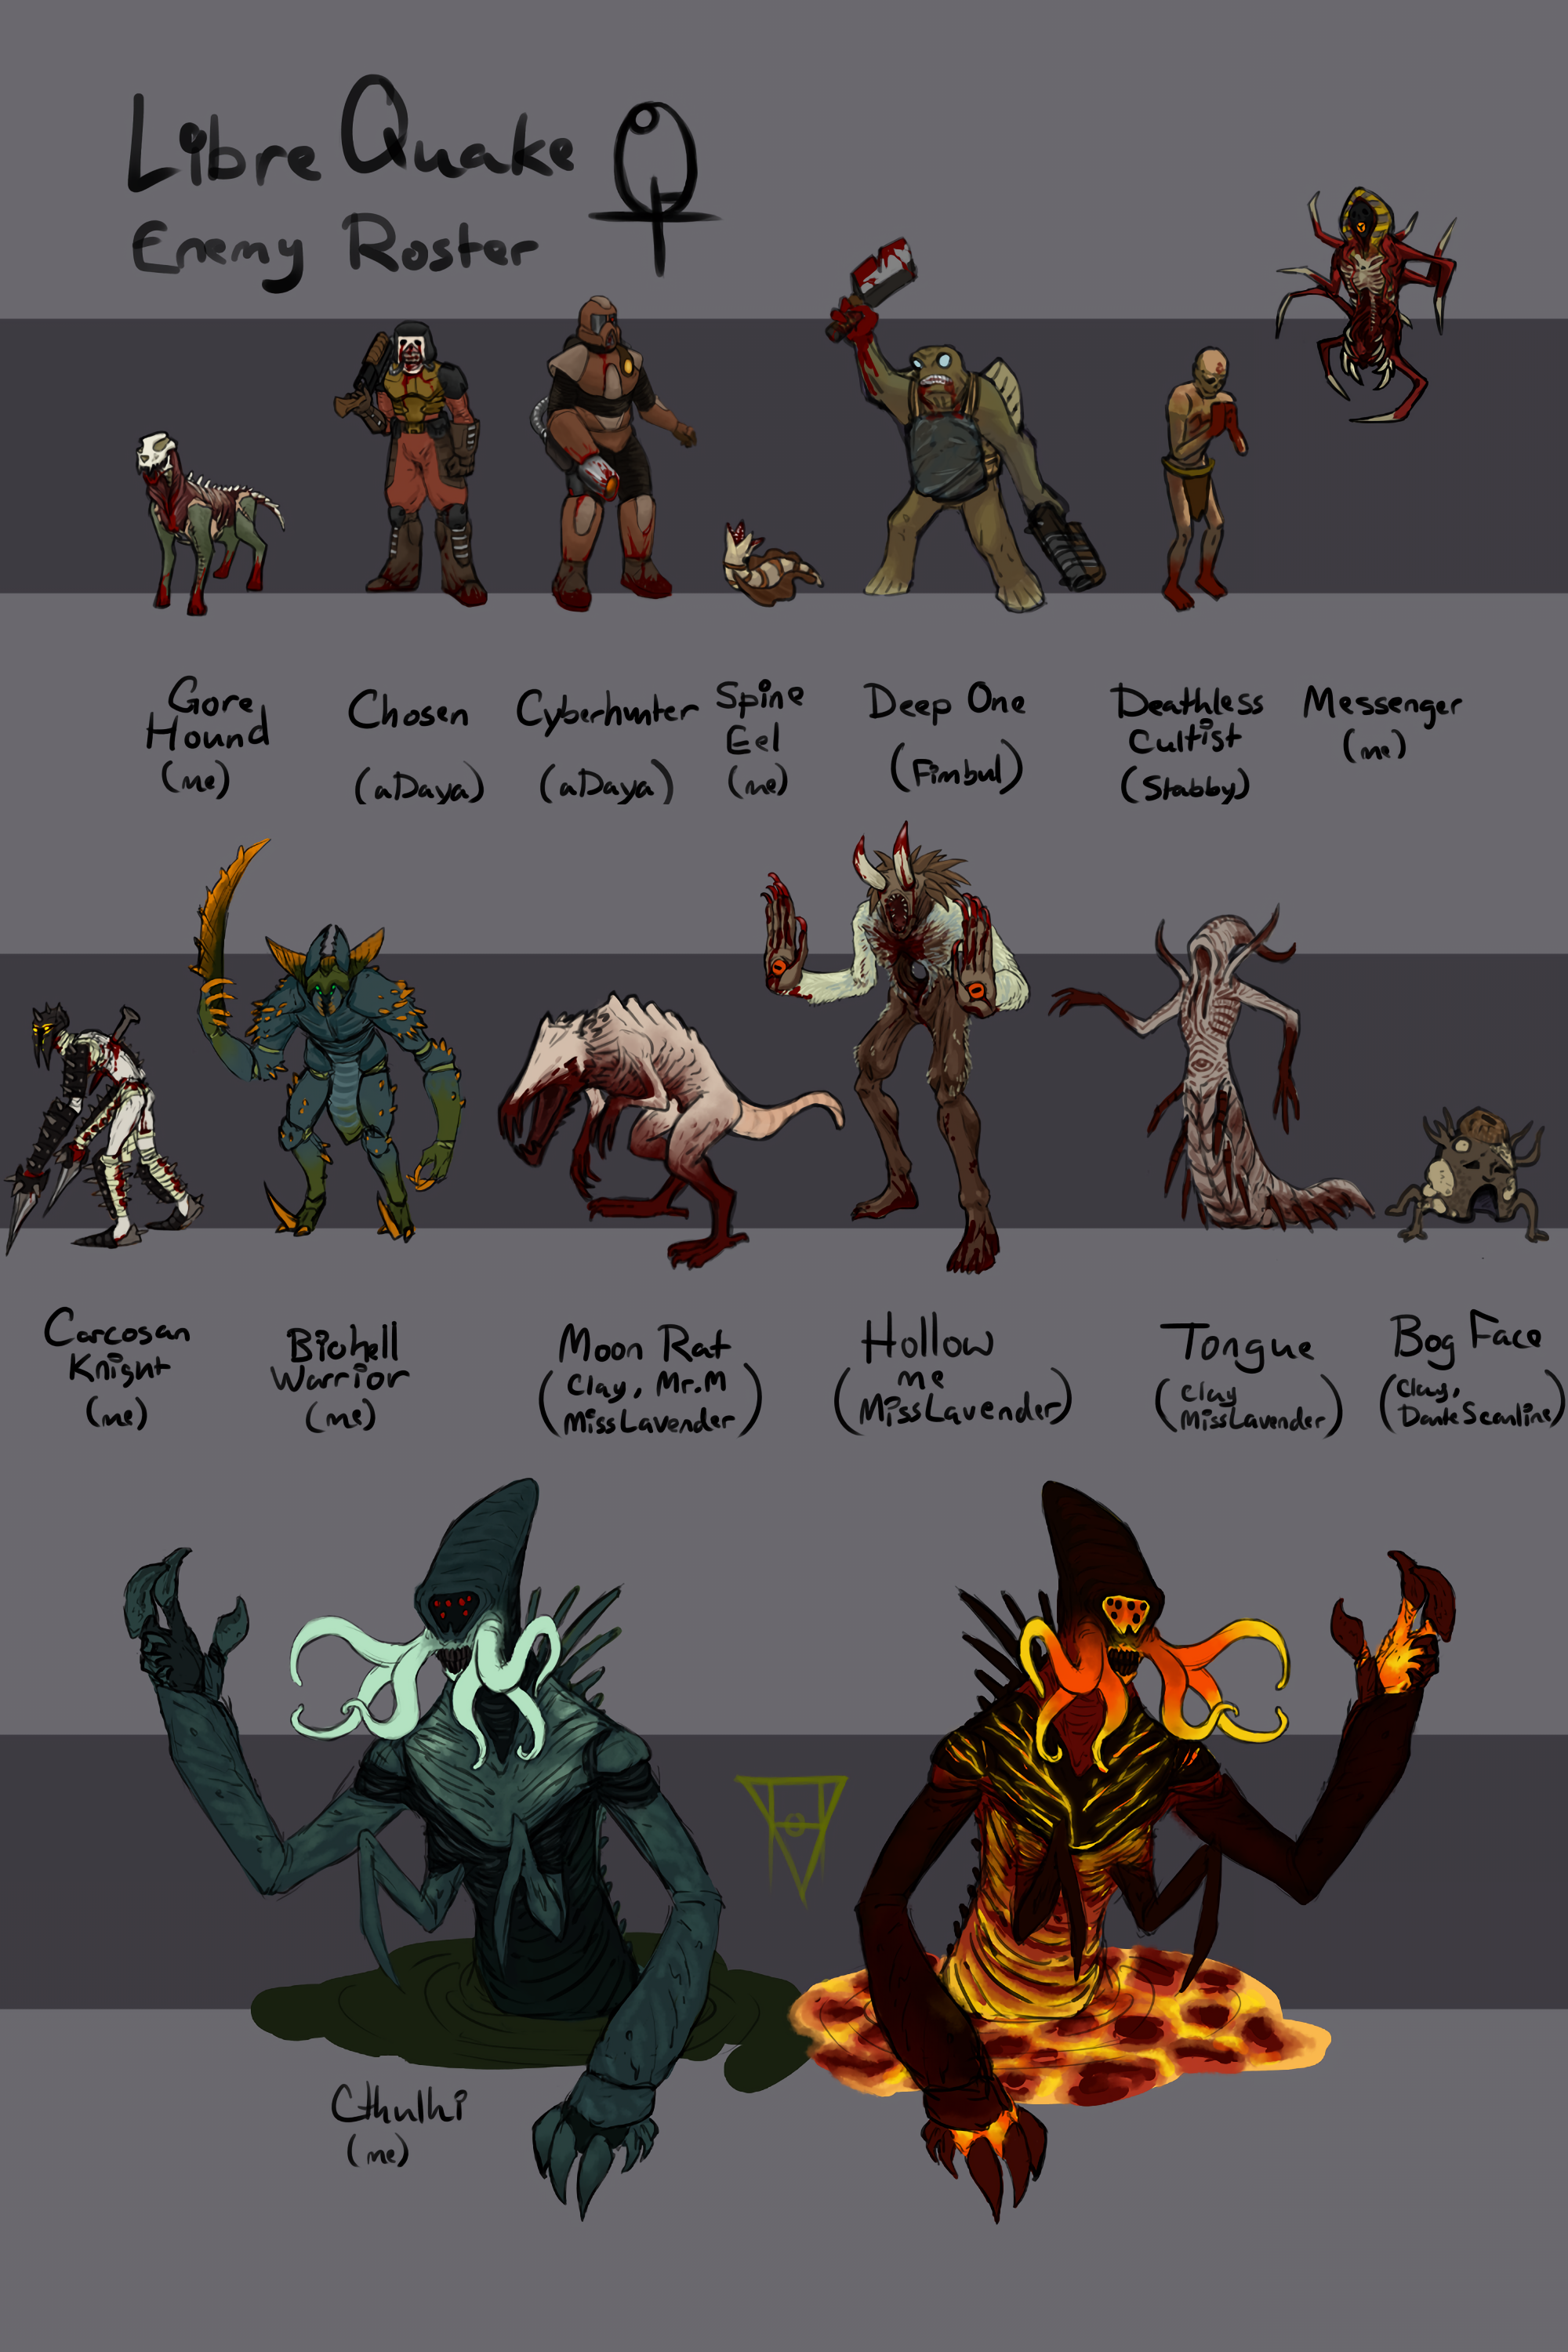 Libre Quake
Enemy Roster
Gore
Hound
(me)
Chosen
(aDaya)
Cyberhunter
(aDaya)
Spine
Eel
(me)
Deep One
(Fimbul)
Deathless
Cultist
(Stabby)
Messenger
(me)
Carcosan
Knight
(me)
Biohell
Warrior
(me)
Moon Rat
(Clay, Mr.M
MissLavender)
Hollow
(me
MissLavender)
Tongue
(Clay
MissLavender)
Bog Face
(Clay,
DankeScanline)
Cthulhi
(me)